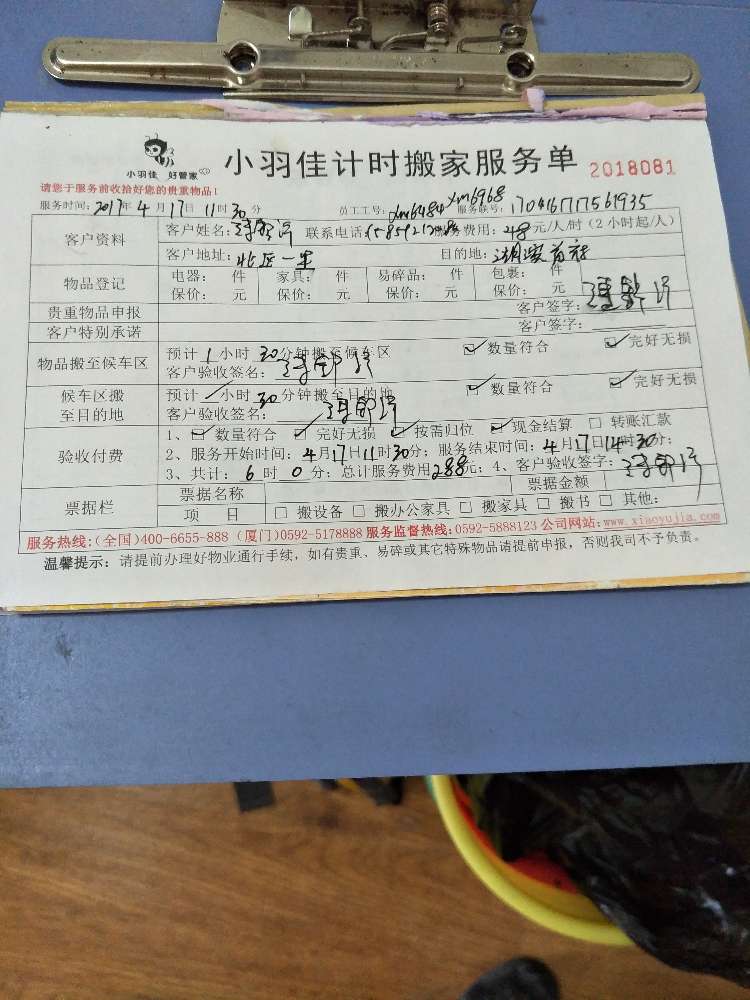 小羽佳 好管家
小羽佳计时搬家服务单 2018081
请您于服务前收拾好您的贵重物品!
服务时间: 2017年 4 月 17 日 11 时 30 分 员工工号: xm6484 xm6968 服务联号: 170416717561935
客户资料
客户姓名: 联系电话 费用: 48 元/人/时 (2 小时起/人)
客户地址: 北区一里 目的地:
物品登记
电器: 件 家具: 件 易碎品: 件 包裹: 件
保价: 元 保价: 元 保价: 元 保价: 元
贵重物品申报 客户签字:
客户特别承诺 客户签字:
物品搬至候车区
预计 1 小时 30 分钟搬至候车区 ☑ 数量符合 ☑ 完好无损
客户验收签名:
候车区搬至目的地
预计 小时 30 分钟搬至目的地 ☑ 数量符合 ☑ 完好无损
客户验收签名:
验收付费
1、☑ 数量符合 ☑ 完好无损 ☑ 按需归位 ☑ 现金结算 □ 转账汇款
2、服务开始时间: 4 月 17 日 11 时 30 分; 服务结束时间: 4 月 17 日 14 时 30 分;
3、共计: 6 时 0 分; 总计服务费用 288 元; 4、客户验收签字:
票据栏
票据名称 票据金额
项 目 □ 搬设备 □ 搬办公家具 □ 搬家具 □ 搬书 □ 其他:
服务热线:(全国)400-6655-888 (厦门)0592-5178888 服务监督热线:0592-5888123 公司网站:www.xiaoyujia.com
温馨提示: 请提前办理好物业通行手续, 如有贵重、易碎或其它特殊物品请提前申报, 否则我司不予负责。